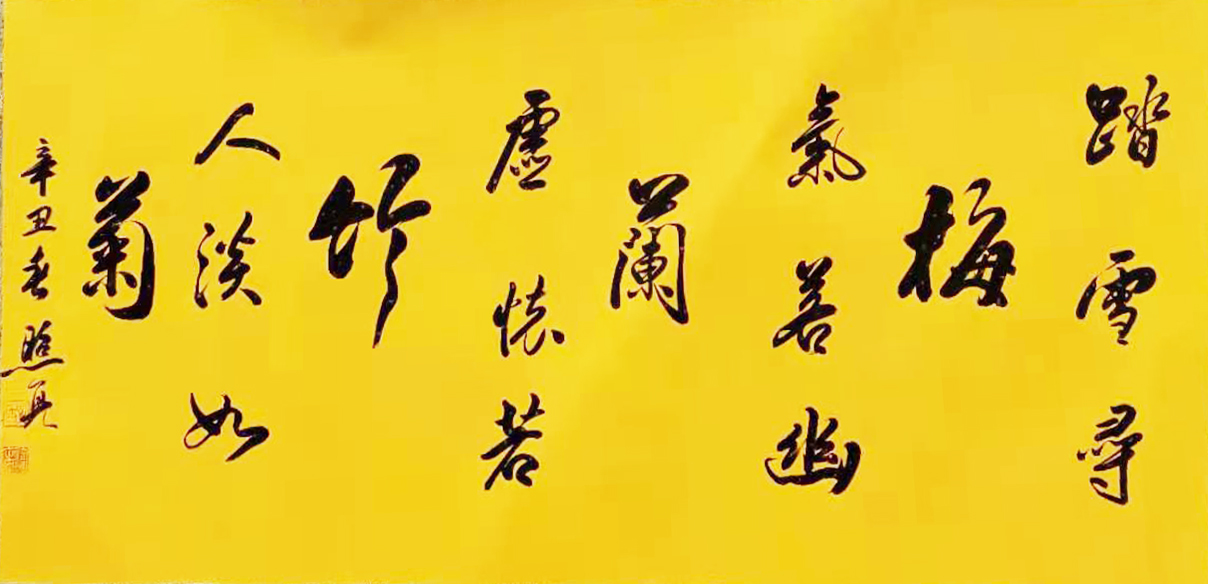 踏雪尋
梅
氣若幽
蘭
虛懷若
竹
人淡如
菊
辛丑春 照兵